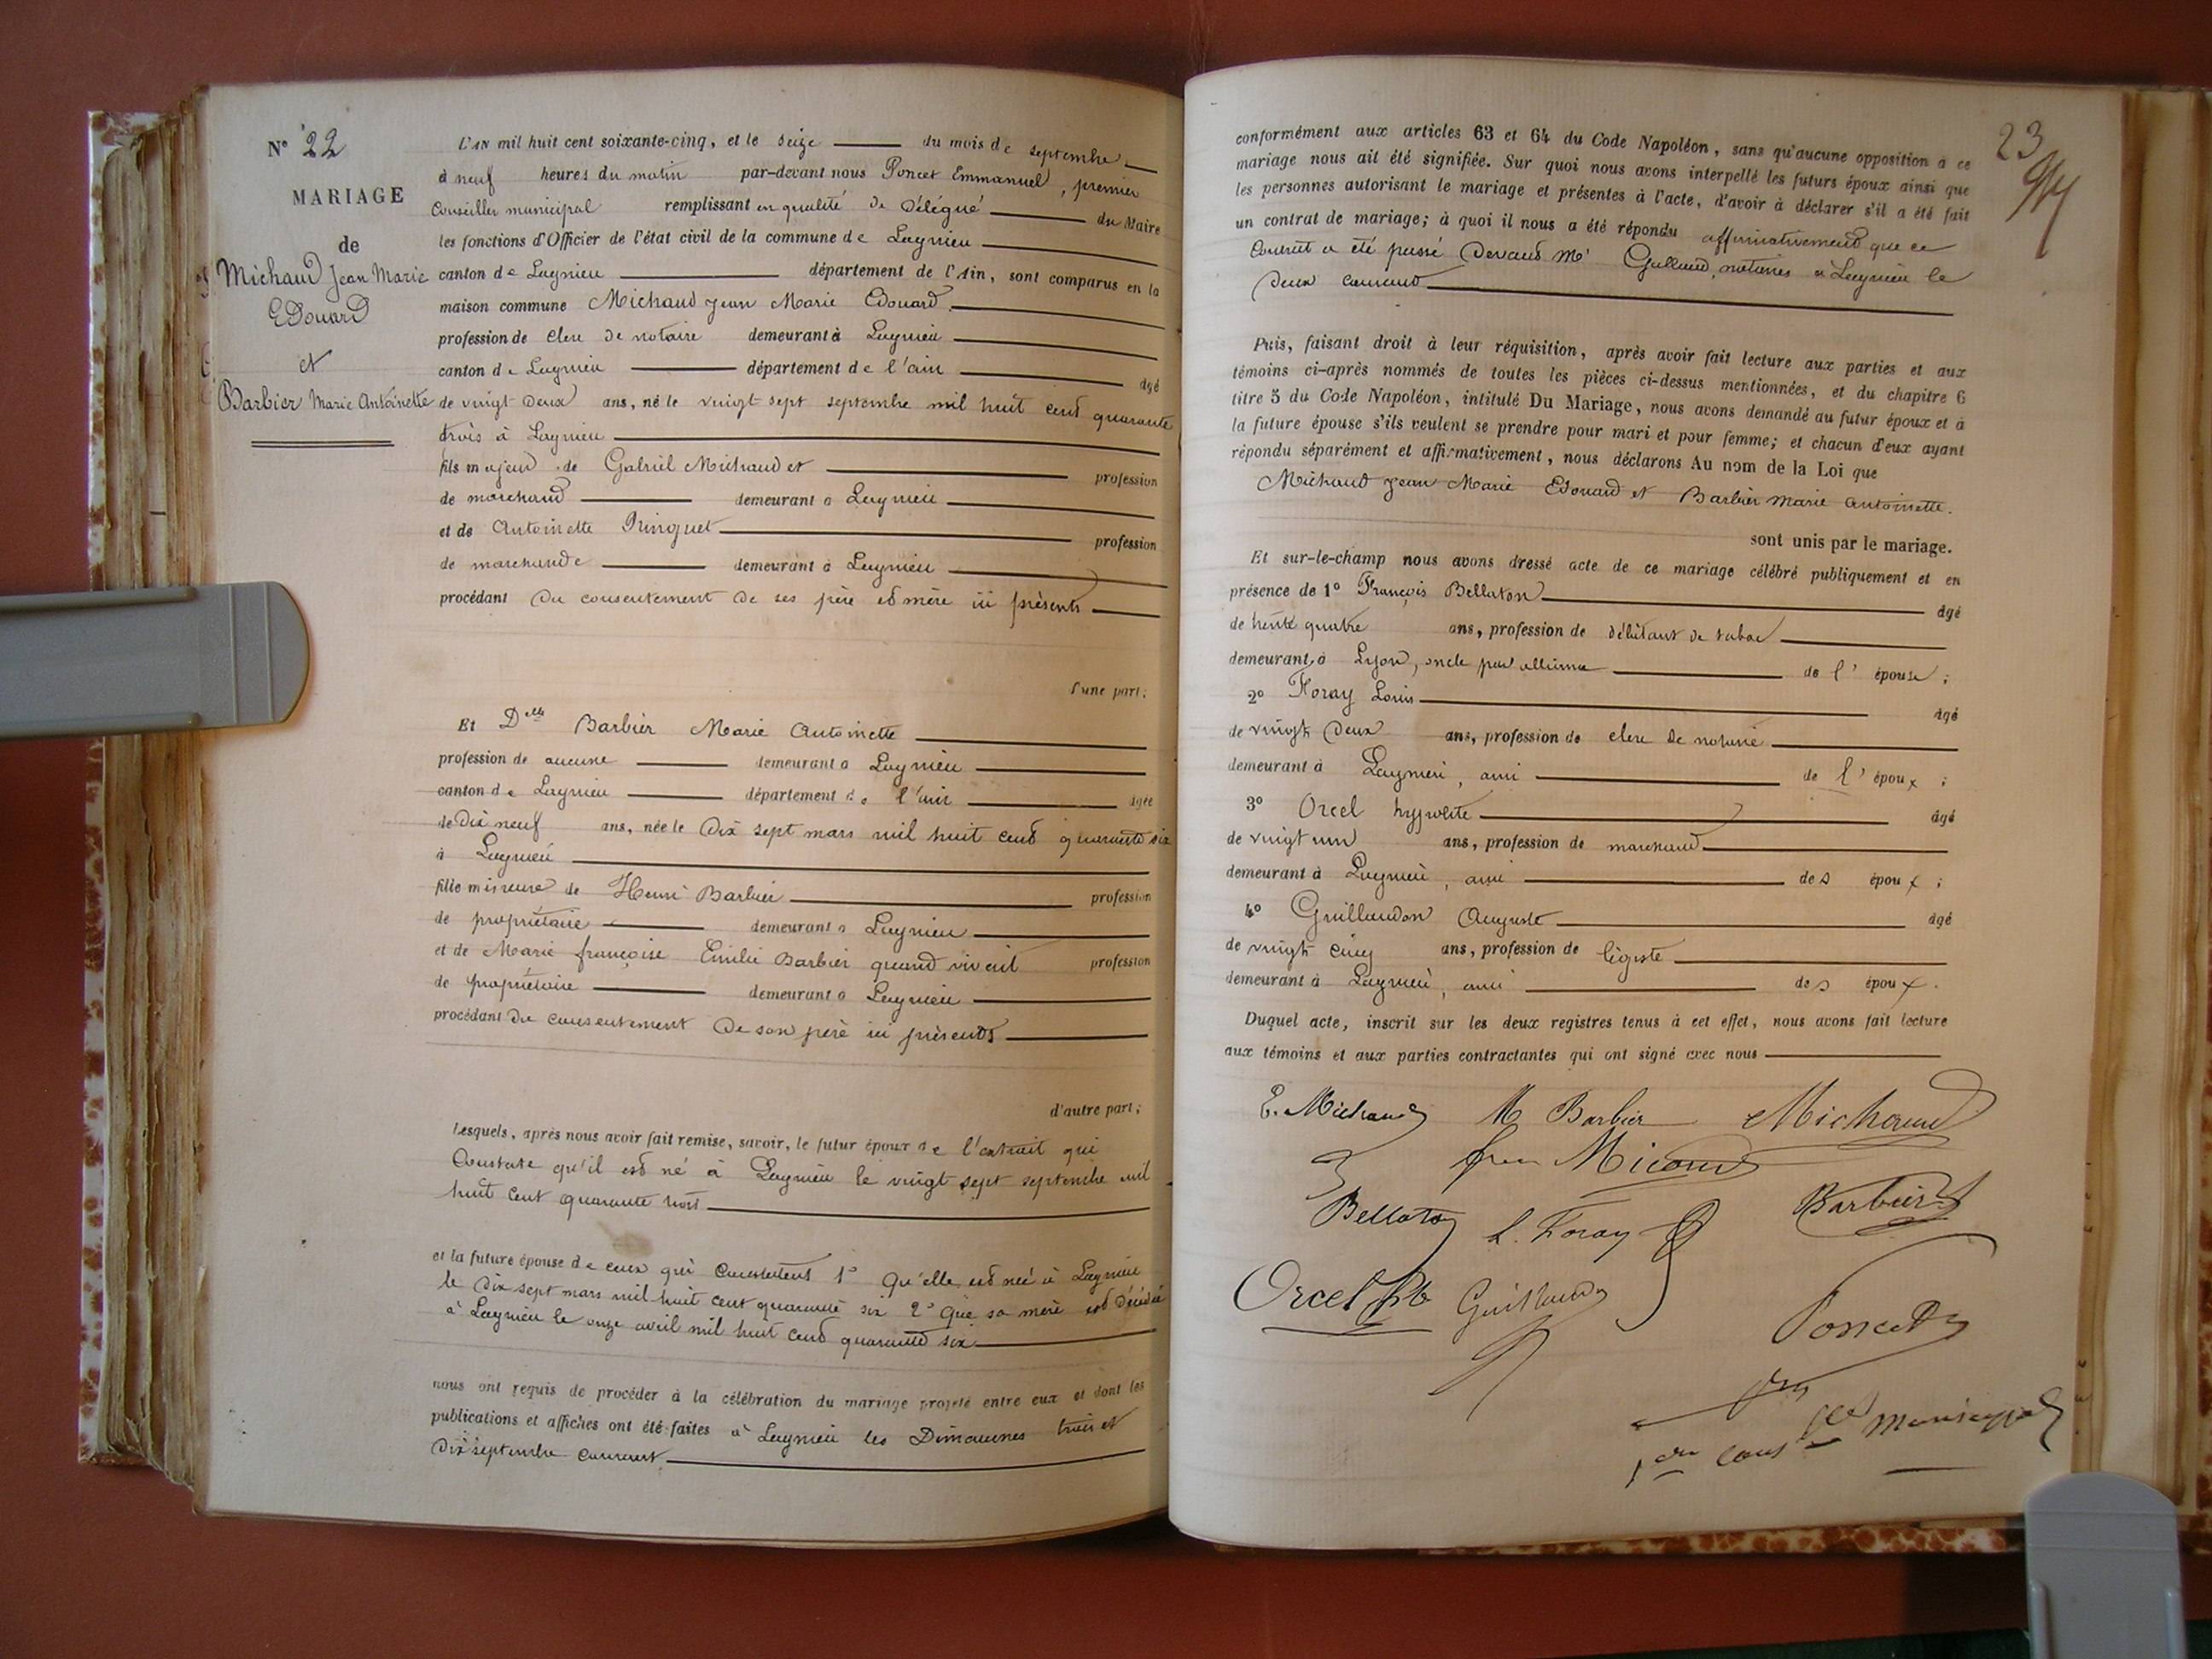 N° 22
MARIAGE
de
Michaud Jean Marie
Edouard
et
Barbier Marie Antoinette
L'AN mil huit cent soixante-cinq, et le seize du mois de septembre
à neuf heures du matin par-devant nous Poncet Emmanuel, premier
Conseiller municipal remplissant en qualité de Délégué du Maire
les fonctions d'Officier de l'état civil de la commune de Lagnieu
canton de Lagnieu département de l'Ain, sont comparus en la
maison commune Michaud Jean Marie Edouard
profession de clerc de notaire demeurant à Lagnieu
canton de Lagnieu département de l'ain âgé
de vingt Deux ans, né le vingt sept septembre mil huit cent quarante
trois à Lagnieu
fils majeur de Gabriel Michaud et profession
de marchand demeurant à Lagnieu
et de Antoinette profession
de marchande demeurant à Lagnieu
procédant du consentement de ses père et mère ici présents
d'une part;
Et Delle Barbier Marie Antoinette
profession de aucune demeurant à Lagnieu
canton de Lagnieu département de l'ain âgée
de Dix neuf ans, née le Dix sept mars mil huit cent quarante six
à Lagnieu
fille mineure de Henri Barbier profession
de propriétaire demeurant à Lagnieu
et de Marie françoise Emilie Barbier quand vivait profession
de propriétaire demeurant à Lagnieu
procédant du consentement De son père ici présents
d'autre part;
Lesquels, après nous avoir fait remise, savoir, le futur époux de l'extrait qui
Constate qu'il est né à Lagnieu le vingt sept septembre mil
huit cent quarante trois
et la future épouse de ceux qui Constatent 1° Qu'elle est née à Lagnieu
le Dix sept mars mil huit cent quarante six 2° Que sa mère est Décédée
à Lagnieu le onze avril mil huit cent quarante six
nous ont requis de procéder à la célébration du mariage projeté entre eux et dont les
publications et affiches ont été faites à Lagnieu les Dimanches trois et
Dix septembre courant
23
conformément aux articles 63 et 64 du Code Napoléon, sans qu'aucune opposition à ce
mariage nous ait été signifiée. Sur quoi nous avons interpellé les futurs époux ainsi que
les personnes autorisant le mariage et présentes à l'acte, d'avoir à déclarer s'il a été fait
un contrat de mariage; à quoi il nous a été répondu affirmativement que ce
Contrat a été passé Devant Me notaires à Lagnieu le
Deux courant
Puis, faisant droit à leur réquisition, après avoir fait lecture aux parties et aux
témoins ci-après nommés de toutes les pièces ci-dessus mentionnées, et du chapitre 6
titre 5 du Code Napoléon, intitulé Du Mariage, nous avons demandé au futur époux et à
la future épouse s'ils veulent se prendre pour mari et pour femme; et chacun d'eux ayant
répondu séparément et affirmativement, nous déclarons Au nom de la Loi que
Michaud Jean Marie Edouard et Barbier Marie Antoinette.
sont unis par le mariage.
Et sur-le-champ nous avons dressé acte de ce mariage célébré publiquement et en
présence de 1° François Bellaton âgé
de trente quatre ans, profession de débitant de tabac
demeurant à Lyon, oncle par alliance de l'épouse;
2° Foray Louis âgé
de vingt Deux ans, profession de clerc de notaire
demeurant à Lagnieu, ami de l'époux;
3° Orcel hyppolite âgé
de vingt un ans, profession de marchand
demeurant à Lagnieu, ami des époux;
4° Guillaudon Auguste âgé
de vingt cinq ans, profession de légiste
demeurant à Lagnieu, ami des époux.
Duquel acte, inscrit sur les deux registres tenus à cet effet, nous avons fait lecture
aux témoins et aux parties contractantes qui ont signé avec nous
E. Michaud M Barbier Michaud
Bellaton L. Foray Barbier
Orcel
Poncet
1er Municipal